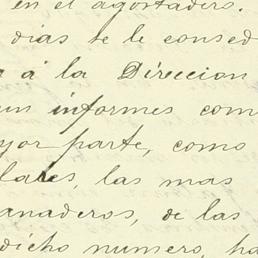 en el agostadero.
dias se le consed
á la Direccion
un informes com
yor parte, como
lares, las mas
anaderos, de las
dicho numero, ha